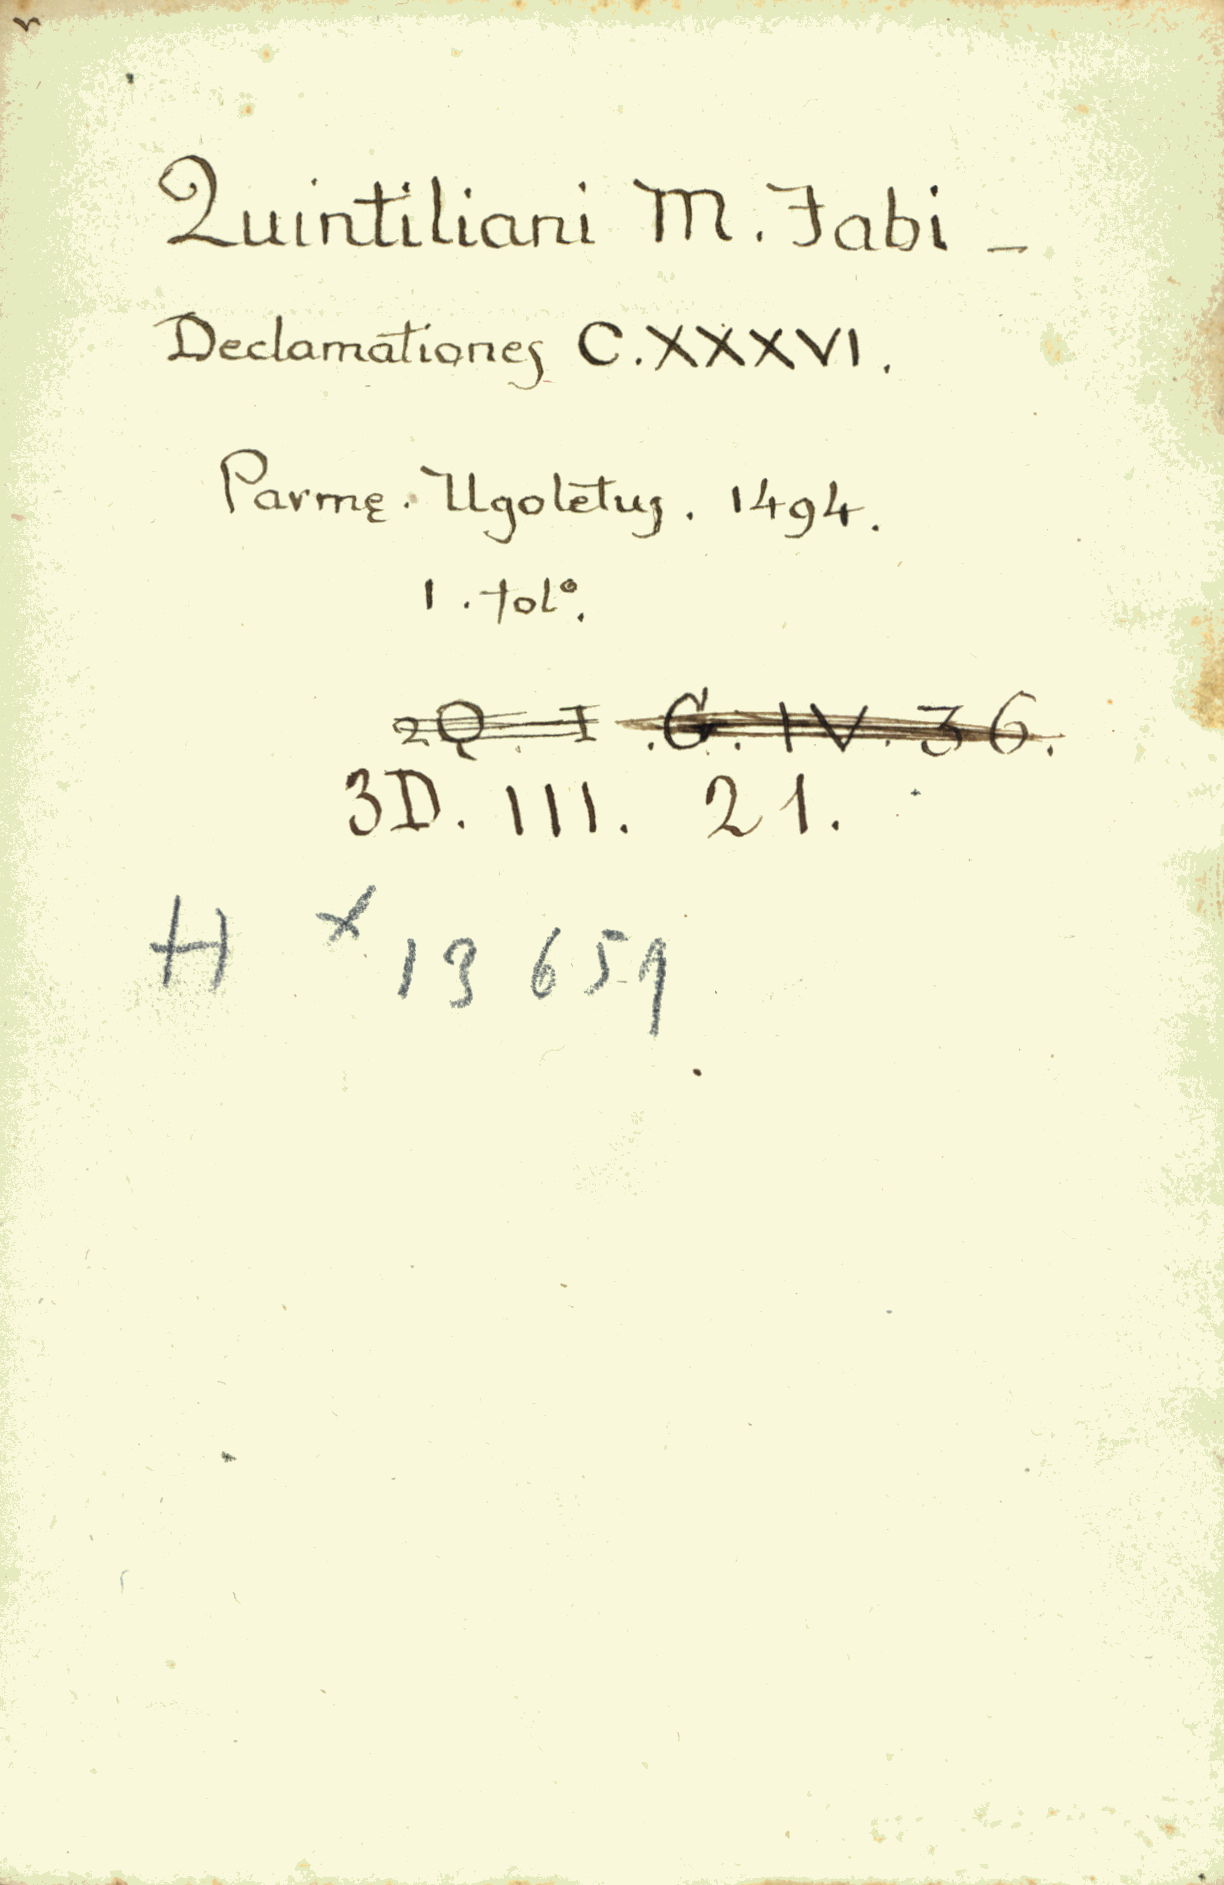 Quintiliani M. Fabi –
Declamationes C.XXXVI.
Parmę. Ugoletus. 1494.
1. fol°.
2Q. I .G. IV. 36.
3D. III. 21.
H x 13659